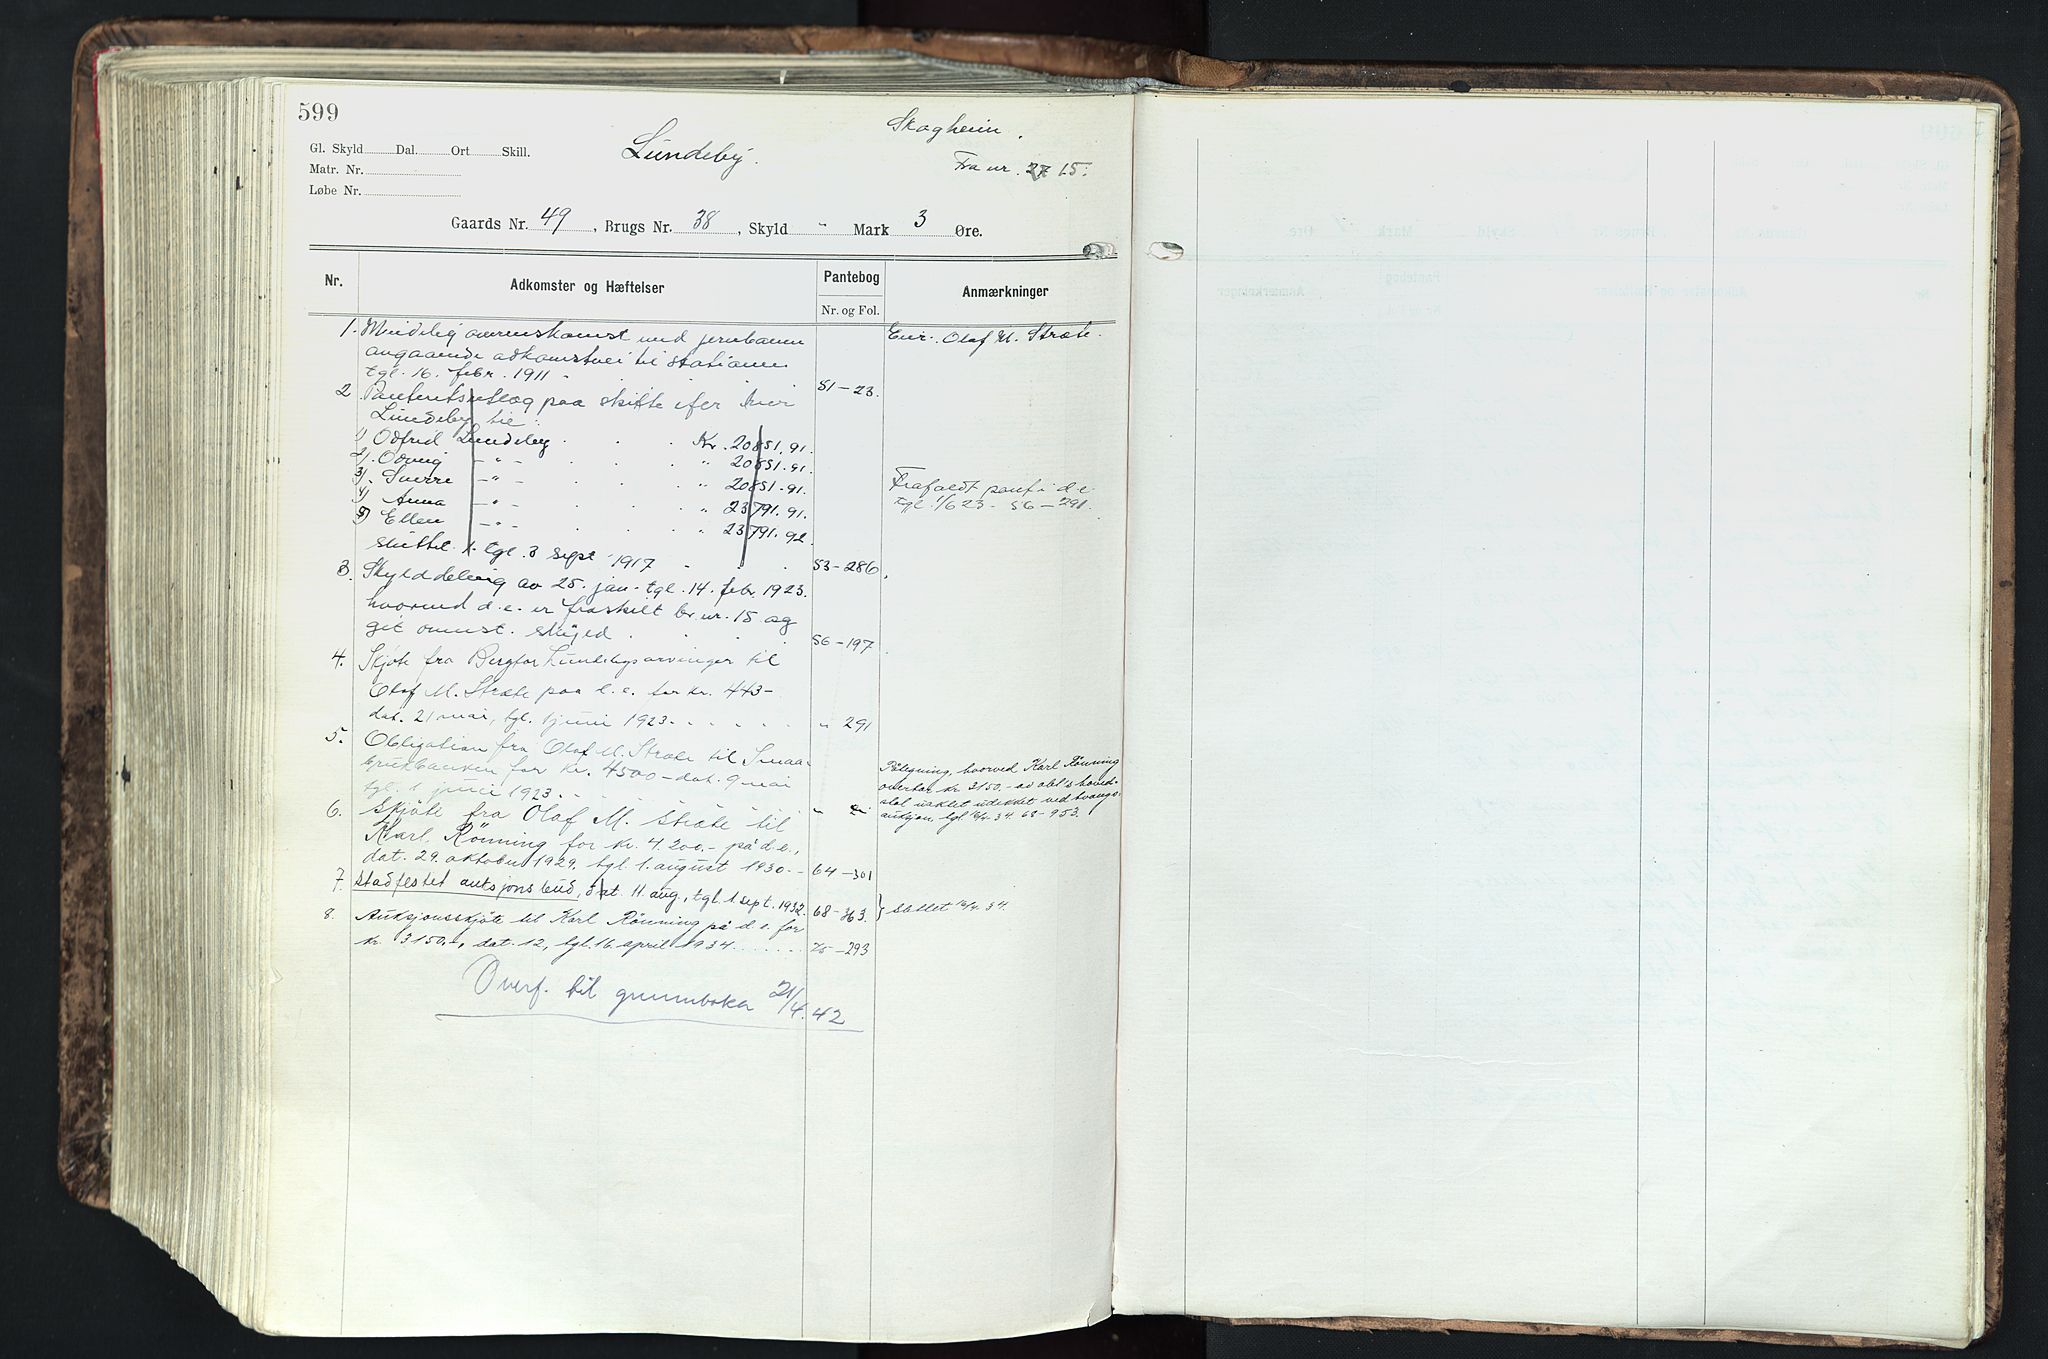 599
Skogheim.
Gl. Skyld Dal. Ort Skill.
Lundeby.
Matr. Nr.
Fra nr. 27 15.
Løbe Nr.
Gaards Nr. 49, Brugs Nr. 38, Skyld " Mark 3 Øre.
Nr. Adkomster og Hæftelser Pantebog Anmærkninger
Nr. og Fol.
1. Mindelig overenskomst med jernbanen
angaaende adkomstvei til stationen
tgl. 16. febr. 1911 51-23.
Eier: Olaf M. Stræte.
2. Panteutlæg paa skifte efter
Lundeby til:
1) Odfrid Lundeby Kr. 20851.91.
2). Solveig -"- " 20851.91.
3). Sverre -"- " 20851.91.
4) Anna -"- " 23791.91.
5) Ellen -"- " 23791.92.
sluttet tgl. 3 sept 1917 53-286.
Frafaldt pant i d.e.
tgl. 1/6 23 - 56-291.
3. Skylddeling av 25. jan. tgl. 14. febr. 1923.
hvorved d.e. er fraskilt br. nr. 15 og
git skyld 56-197
4. Skjøte fra Bergtor Lundebys arvinger til
Olaf M. Stræte paa d.e. for kr. 443-
dat. 21 mai, tgl. 1 juni 1923. " 291
5. Obligation fra Olaf M. Stræte til Smaa-
brukbanken for kr. 4500- dat. 9 mai
tgl. 1 juni 1923. " "
Påtegning, hvorved Karl Rönning
overtar kr. 3150,- av obl's hoved-
stol udekket ved tvangs-
auksjon, tgl. 16/4. 34. 68-953.
6. Skjöte fra Olaf M. Stræte til
Karl Rönning for kr. 4.200.- på d.e.,
dat. 29. oktober 1929, tgl. 1. august 1930. - 64-301
7. Stadfestet auksjonsbud, dat. 11. aug., tgl. 1 sept. 1932. 68-363. } Slettet 16/4. 34.
8. Auksjonsskjöte til Karl Rönning på d.e. for
kr. 3150.-, dat. 12, tgl. 16. april 1934. 75-293
Overf. til grunnboken 21/4. 42